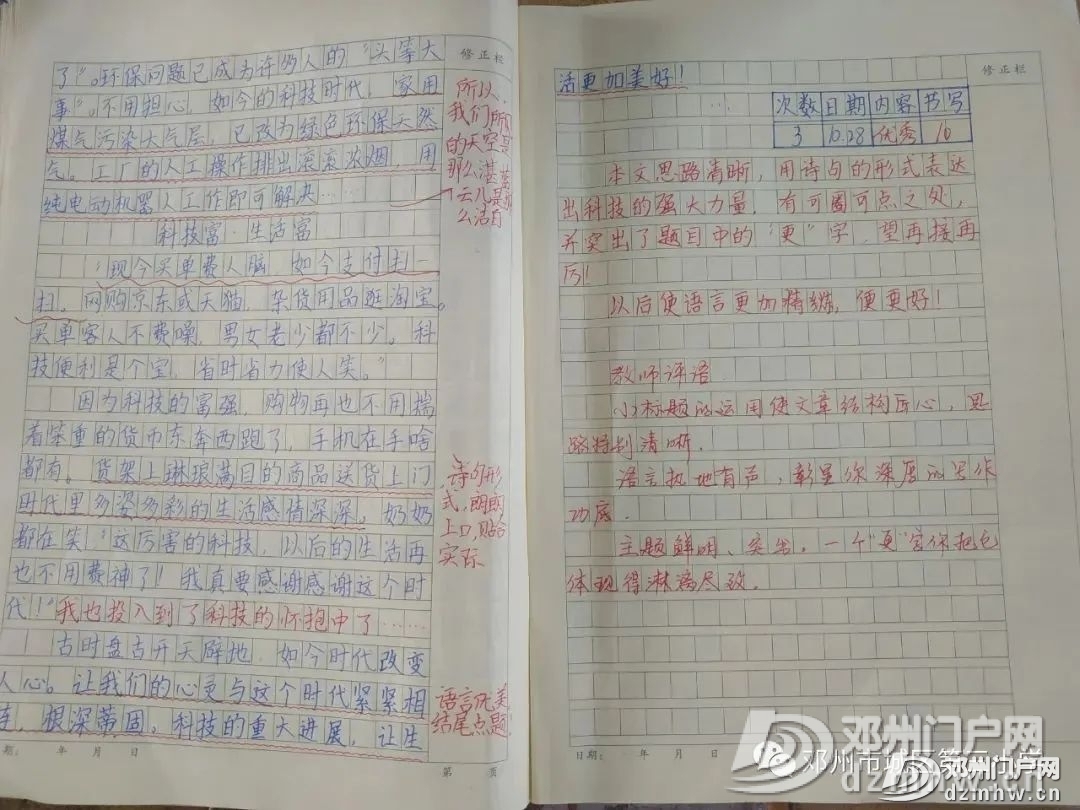 了”。环保问题已成为许多人的“头等大
事”。不用担心，如今的科技时代，家用
煤气污染大气层，已改为绿色环保天然
气。工厂的人工操作排出滚滚浓烟，用
纯电动机器人工作即可解决……
科技富·生活富
“现今买单费人脑，如今支付扫一
扫。网购京东或天猫，杂货用品逛淘宝。
买单客人不费嗓，男女老少都不少。科
技便利是个宝，省时省力使人笑。”
因为科技的富强，购物再也不用揣
着笨重的货币东奔西跑了，手机在手啥
都有。货架上琳琅满目的商品送货上门
时代里多姿多彩的生活感情深深。奶奶
都在笑“这厉害的科技，以后的生活再
也不用费神了！我真要感谢感谢这个时
代！”我也投入到了科技的怀抱中了……
古时盘古开天辟地，如今时代改变
人心。让我们的心灵与这个时代紧紧相
连，根深蒂固。科技的重大进展，让生
期： 年 月 日
第 页
修正栏
所以，
我们所
的天空是
那么湛蓝
云儿是那
么洁白
诗句形
式，朗朗
上口，贴合
实际
语言优美
结尾点题
活更加美好！
修正栏
次数 日期 内容 书写
3 10.28 优秀 10
本文思路清晰，用诗句的形式表达
出科技的强大力量，有可圈可点之处，
并突出了题目中的“更”字，望再接再
厉！
以后使语言更加精练，便更好！
教师评语
小标题的运用使文章结构匠心，思
路特别清晰。
语言执地有声，彰显你深厚的写作
功底。
主题鲜明、突出，一个“更”字你把它
体现得淋漓尽致。
日期： 年 月 日
邓州门户网
邓州市城区第三小学
dzmhw.cn
邓州门户网
dzmhw.cn